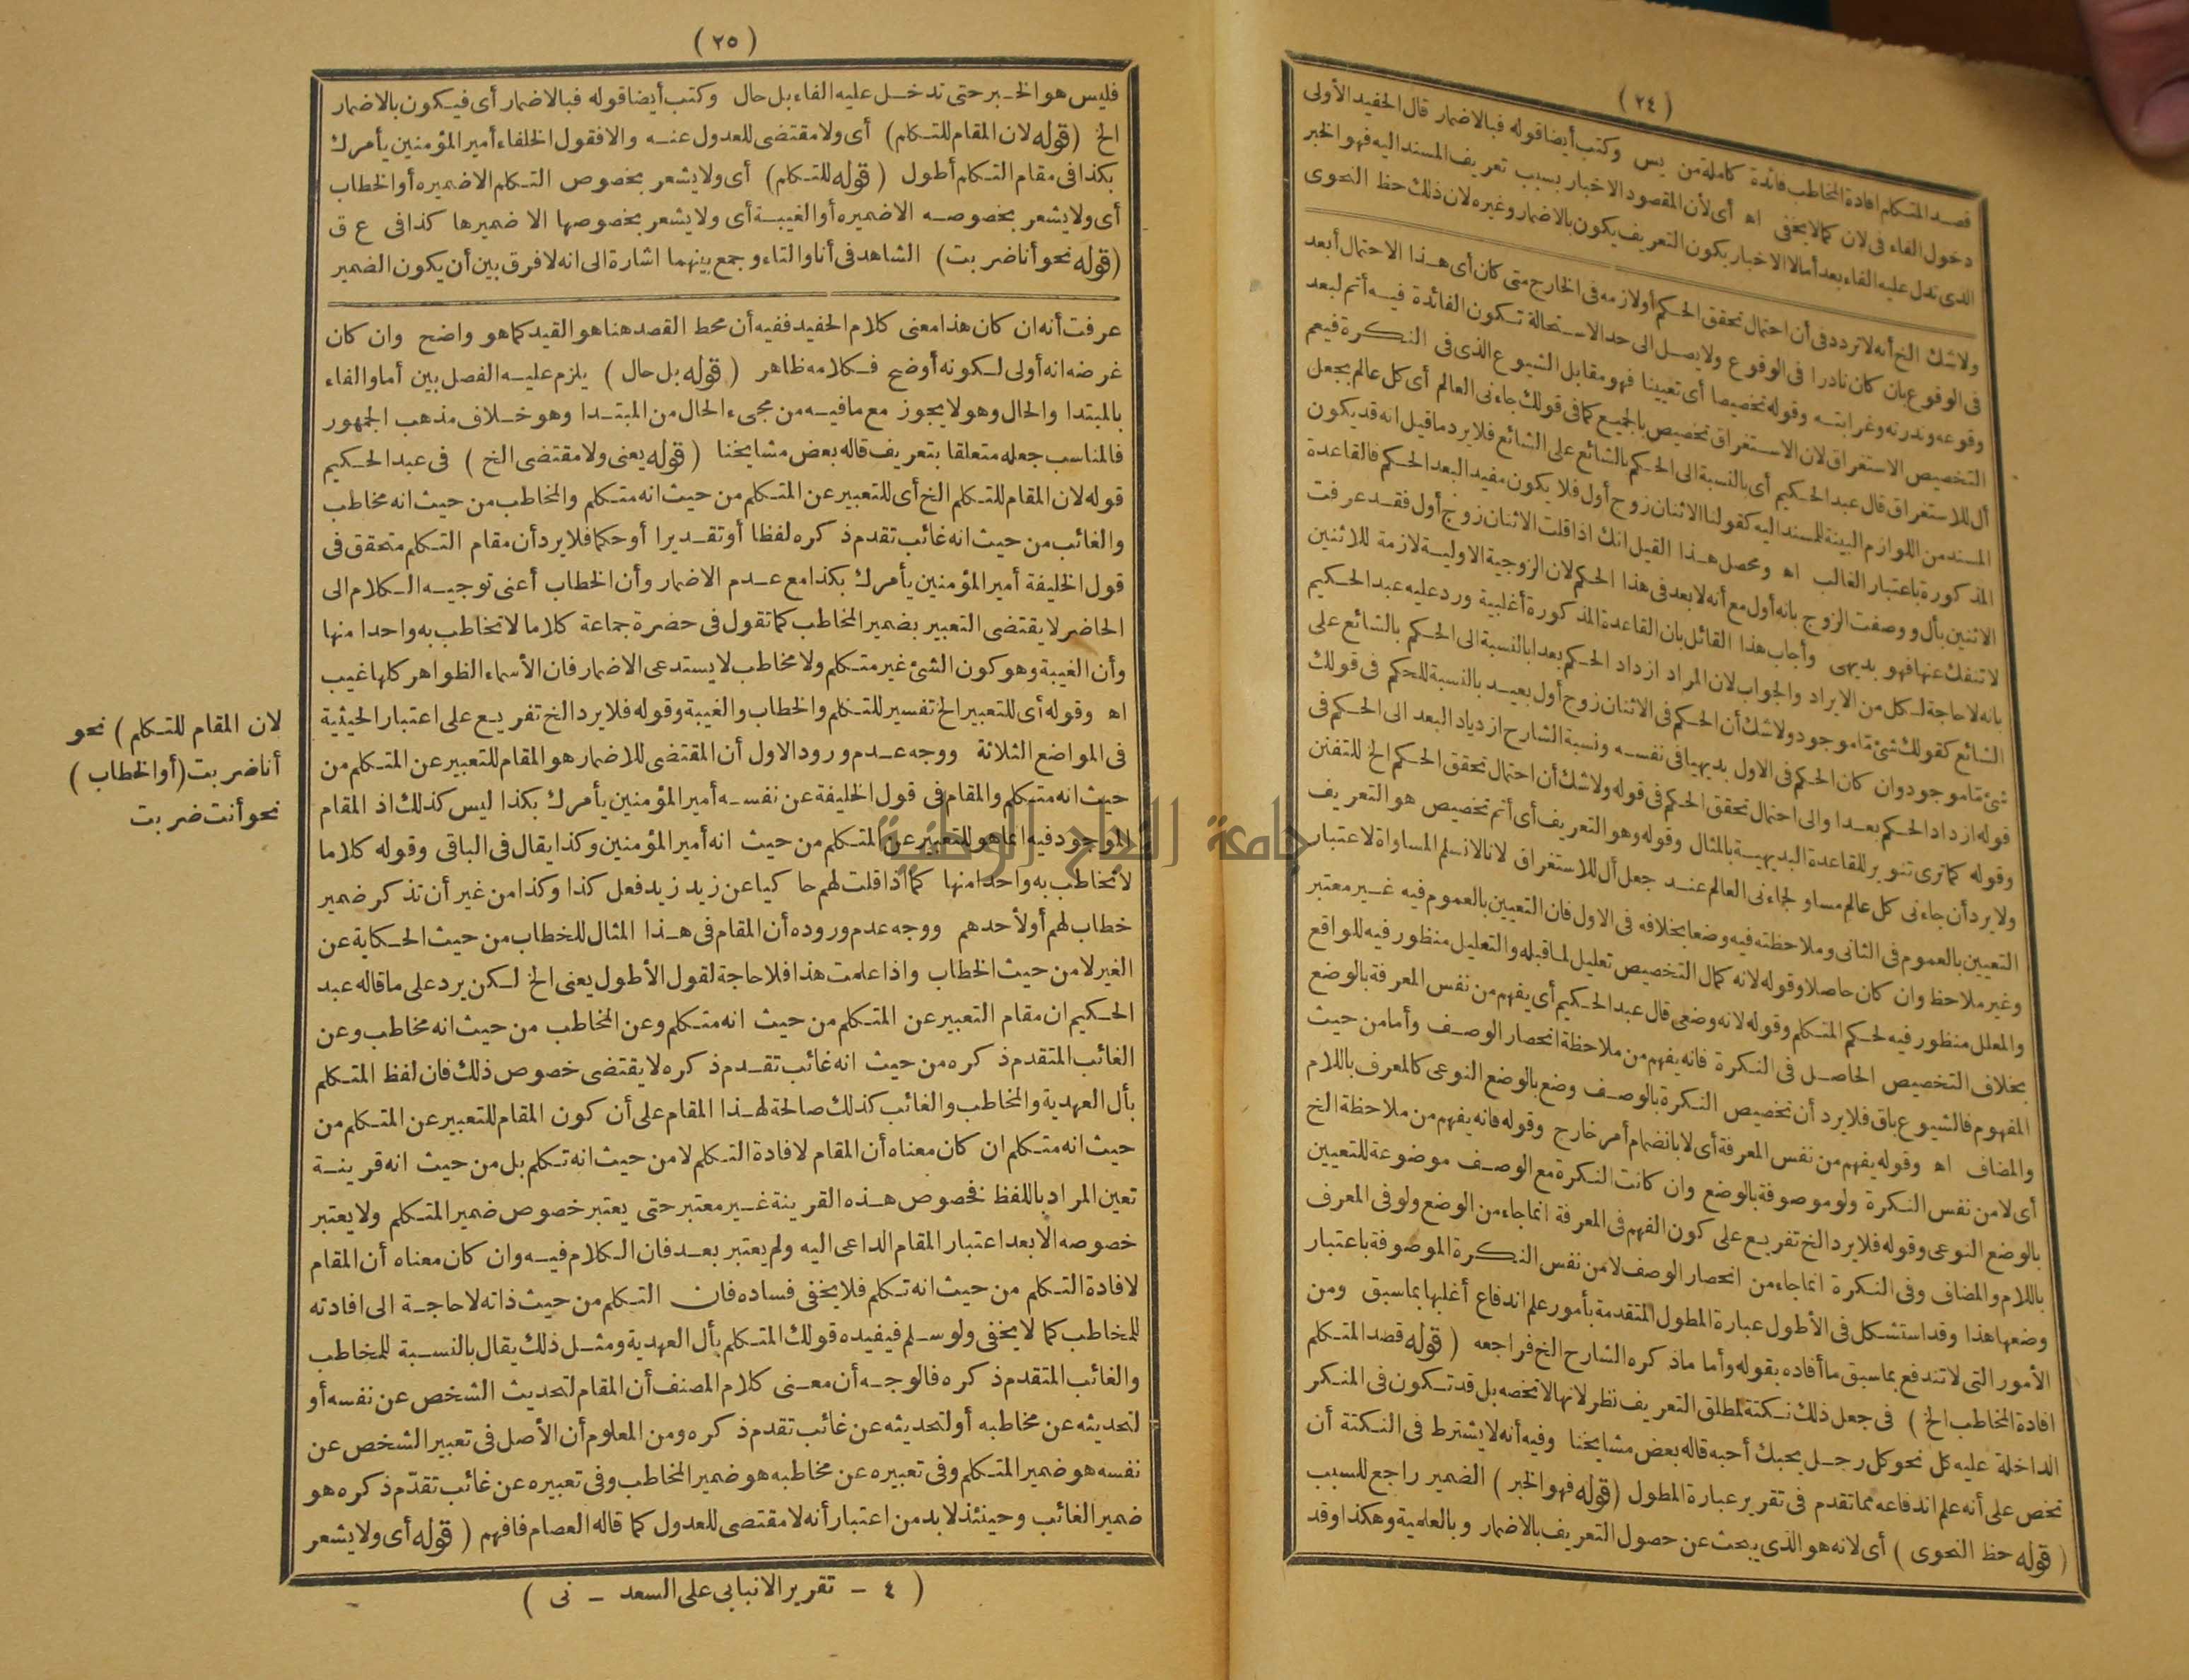 ( ٢٤ )
قصد المتكلم افادة المخاطب فائدة كاملة من يس وكتب أيضا قوله فبالاضمار قال الحفيد الأولى
دخول الفاء فى لان كمالا يخفى اه أى لأن المقصود الاخبار بسبب تعريف المسند اليه فهو الخبر
الذى تدل عليه الفاء بعد أما لا الاخبار بكون التعريف يكون بالاضمار وغيره لان ذلك حظ النحوى
ولاشك الخ أنه لا تردد فى أن احتمال تحقق الحكم أو لازمه فى الخارج متى كان أى هذا الاحتمال أبعد
فى الوقوع بان كان نادرا فى الوقوع ولا يصل الى حد الاستحالة تكون الفائدة فيه أتم لبعد
وقوعه وندرته وغرابته وقوله تخصيصا أى تعيينا فهو مقابل الشيوع الذى فى النكرة فيعم
التخصيص الاستغراق لان الاستغراق تخصيص بالجميع كما فى قولك جاءنى العالم أى كل عالم بجعل
أل للاستغراق قال عبد الحكيم أى بالنسبة الى الحكم بالشائع على الشائع فلا يرد ما قيل انه قد يكون
المسند من اللوازم البينة للمسند اليه كقولنا الاثنان زوج أول فلا يكون مفيد البعد الحكم فالقاعدة
المذكورة باعتبار الغالب اه ومحصل هذا القيل انك اذا قلت الاثنان زوج أول فقد عرفت
الاثنين بأل ووصفت الزوج بانه أول مع أنه لا بعد فى هذا الحكم لان الزوجية الاولية لازمة للاثنين
لا تنفك عنها فهو بديهى وأجاب هذا القائل بان القاعدة المذكورة أغلبية ورد عليه عبد الحكيم
بانه لا حاجة لكل من الايراد والجواب لان المراد ازداد الحكم بعدا بالنسبة الى الحكم بالشائع على
الشائع كقولك شئ ما موجود ولاشك أن الحكم فى الاثنان زوج أول بعيد بالنسبة للحكم فى قولك
شئ ما موجود وان كان الحكم فى الاول بديهيا فى نفسه ونسبة الشارح ازدياد البعد الى الحكم فى
قوله ازداد الحكم بعدا والى احتمال تحقق الحكم فى قوله ولاشك أن احتمال تحقق الحكم الخ للتفنن
وقوله كماترى تنوير للقاعدة البديهية بالمثال وقوله وهو التعريف أى أتم تخصيص هو التعريف
ولا يرد أن جاءنى كل عالم مساو لجاءنى العالم عند جعل أل للاستغراق لانا لا نسلم المساواة لاعتبار
التعيين بالعموم فى الثانى وملاحظته فيه وضعا بخلافه فى الاول فان التعيين بالعموم فيه غير معتبر
وغير ملاحظ وان كان حاصلا وقوله لانه كمال التخصيص تعليل لما قبله والتعليل منظور فيه للواقع
والمعلل منظور فيه لحكم المتكلم وقوله لانه وضعى قال عبد الحكيم أى يفهم من نفس المعرفة بالوضع
بخلاف التخصيص الحاصل فى النكرة فانه يفهم من ملاحظة انحصار الوصف وأما من حيث
المفهوم فالشيوع باق فلا يرد أن تخصيص النكرة بالوصف وضع بالوضع النوعى كالمعرف باللام
والمضاف اه وقوله يفهم من نفس المعرفة أى لا بانضمام أمر خارج وقوله فانه يفهم من ملاحظة الخ
أى لا من نفس النكرة ولو موصوفة بالوضع وان كانت النكرة مع الوصف موضوعة للتعيين
بالوضع النوعى وقوله فلا يرد الخ تفريع على كون الفهم فى المعرفة انما جاء من الوضع ولو فى المعرف
باللام والمضاف وفى النكرة انما جاء من انحصار الوصف لا من نفس النكرة الموصوفة باعتبار
وضعها هذا وقد استشكل فى الأطول عبارة المطول المتقدمة بأمور علم اندفاع أغلبها بما سبق ومن
الأمور التى لا تندفع بما سبق ما أفاده بقوله وأما ما ذكره الشارح الخ فراجعه ( قوله قصد المتكلم
افادة المخاطب الخ ) فى جعل ذلك نكتة لمطلق التعريف نظر لانها لا تخصه بل قد تكون فى المنكر
الداخلة عليه كل نحو كل رجل يحبك أحبه قاله بعض مشايخنا وفيه أنه لا يشترط فى النكتة أن
تخص على أنه علم اندفاعه مما تقدم فى تقرير عبارة المطول (قوله فهو الخبر ) الضمير راجع للسبب
( قوله حظ النحوى ) أى لانه هو الذى يبحث عن حصول التعريف بالاضمار وبالعلمية وهكذا وقد
( ٢٥ )
فليس هو الخبر حتى تدخل عليه الفاء بل حال وكتب أيضا قوله فبالاضمار أى فيكون بالاضمار
الخ (قوله لان المقام للتكلم) أى ولا مقتضى للعدول عنه والا فقول الخلفاء أمير المؤمنين يأمرك
بكذا فى مقام التكلم أطول (قوله للتكلم) أى ولا يشعر بخصوص التكلم الا ضميره أو الخطاب
أى ولا يشعر بخصوصه الا ضميره أو الغيبة أى ولا يشعر بخصوصها الا ضميرها كذا فى ع ق
(قوله نحو أنا ضربت) الشاهد فى أنا والتاء وجمع بينهما اشارة الى انه لا فرق بين أن يكون الضمير
عرفت أنه ان كان هذا معنى كلام الحفيد ففيه أن محط القصد هنا هو القيد كما هو واضح وان كان
غرضه انه أولى لكونه أوضح فكلامه ظاهر ( قوله بل حال ) يلزم عليه الفصل بين أما والفاء
بالمبتدا والحال وهو لا يجوز مع ما فيه من مجىء الحال من المبتدا وهو خلاف مذهب الجمهور
فالمناسب جعله متعلقا بتعريف قاله بعض مشايخنا ( قوله يعنى ولا مقتضى الخ ) فى عبد الحكيم
قوله لان المقام للتكلم الخ أى للتعبير عن المتكلم من حيث انه متكلم والمخاطب من حيث انه مخاطب
والغائب من حيث انه غائب تقدم ذكره لفظا أو تقديرا أو حكما فلا يرد أن مقام التكلم متحقق فى
قول الخليفة أمير المؤمنين يأمرك بكذا مع عدم الاضمار وأن الخطاب أعنى توجيه الكلام الى
الحاضر لا يقتضى التعبير بضمير المخاطب كما تقول فى حضرة جماعة كلاما لا تخاطب به واحدا منها
وأن الغيبة وهو كون الشئ غير متكلم ولا مخاطب لا يستدعى الاضمار فان الأسماء الظواهر كلها غيب
اه وقوله أى للتعبير الخ تفسير للتكلم والخطاب والغيبة وقوله فلا يرد الخ تفريع على اعتبار الحيثية
فى المواضع الثلاثة ووجه عدم ورود الاول أن المقتضى للاضمار هو المقام للتعبير عن المتكلم من
حيث انه متكلم والمقام فى قول الخليفة عن نفسه أمير المؤمنين يأمرك بكذا ليس كذلك اذ المقام
الموجود فيه انما هو للتعبير عن المتكلم من حيث انه أمير المؤمنين وكذا يقال فى الباقى وقوله كلاما
لا تخاطب به واحدا منها كما اذا قلت لهم حاكيا عن زيد زيد فعل كذا وكذا من غير أن تذكر ضمير
خطاب لهم أو لأحدهم ووجه عدم وروده أن المقام فى هذا المثال للخطاب من حيث الحكاية عن
الغير لا من حيث الخطاب واذا علمت هذا فلا حاجة لقول الأطول يعنى الخ لكن يرد على ما قاله عبد
الحكيم ان مقام التعبير عن المتكلم من حيث انه متكلم وعن المخاطب من حيث انه مخاطب وعن
الغائب المتقدم ذكره من حيث انه غائب تقدم ذكره لا يقتضى خصوص ذلك فان لفظ المتكلم
بأل العهدية والمخاطب والغائب كذلك صالحة لهذا المقام على أن كون المقام للتعبير عن المتكلم من
حيث انه متكلم ان كان معناه أن المقام لافادة التكلم لا من حيث انه تكلم بل من حيث انه قرينة
تعين المراد باللفظ فخصوص هذه القرينة غير معتبر حتى يعتبر خصوص ضمير المتكلم ولا يعتبر
خصوصه الا بعد اعتبار المقام الداعى اليه ولم يعتبر بعد فان الكلام فيه وان كان معناه أن المقام
لافادة التكلم من حيث انه تكلم فلا يخفى فساده فان التكلم من حيث ذاته لا حاجة الى افادته
للمخاطب كما لا يخفى ولو سلم فيفيده قولك المتكلم بأل العهدية ومثل ذلك يقال بالنسبة للمخاطب
والغائب المتقدم ذكره فالوجه أن معنى كلام المصنف أن المقام لتحديث الشخص عن نفسه أو
لتحديثه عن مخاطبه أو لتحديثه عن غائب تقدم ذكره ومن المعلوم أن الأصل فى تعبير الشخص عن
نفسه هو ضمير المتكلم وفى تعبيره عن مخاطبه هو ضمير المخاطب وفى تعبيره عن غائب تقدّم ذكره هو
ضمير الغائب وحينئذ لا بد من اعتبار أنه لا مقتضى للعدول كما قاله العصام فافهم ( قوله أى ولا يشعر
لان المقام للتكلم ) نحو
أنا ضربت (أو الخطاب )
نحو أنت ضربت
( ٤ - تقرير الانبابى على السعد - نى )
جامعة النجاح الوطنية